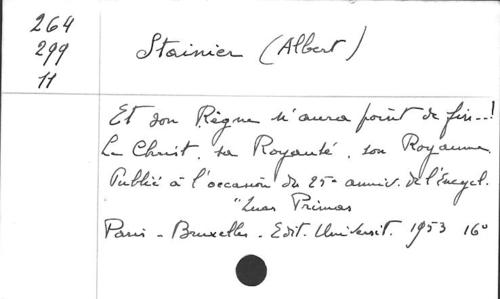 264
299
11
Stainier (Albert)
Et son Règne n'aura point de fin...!
Le Christ, sa Royauté, son Royaume.
Publié à l'occasion du 25e anniv. de l'Encycl.
"Quas Primas
Paris - Bruxelles. Edit. Universit. 1953 16°